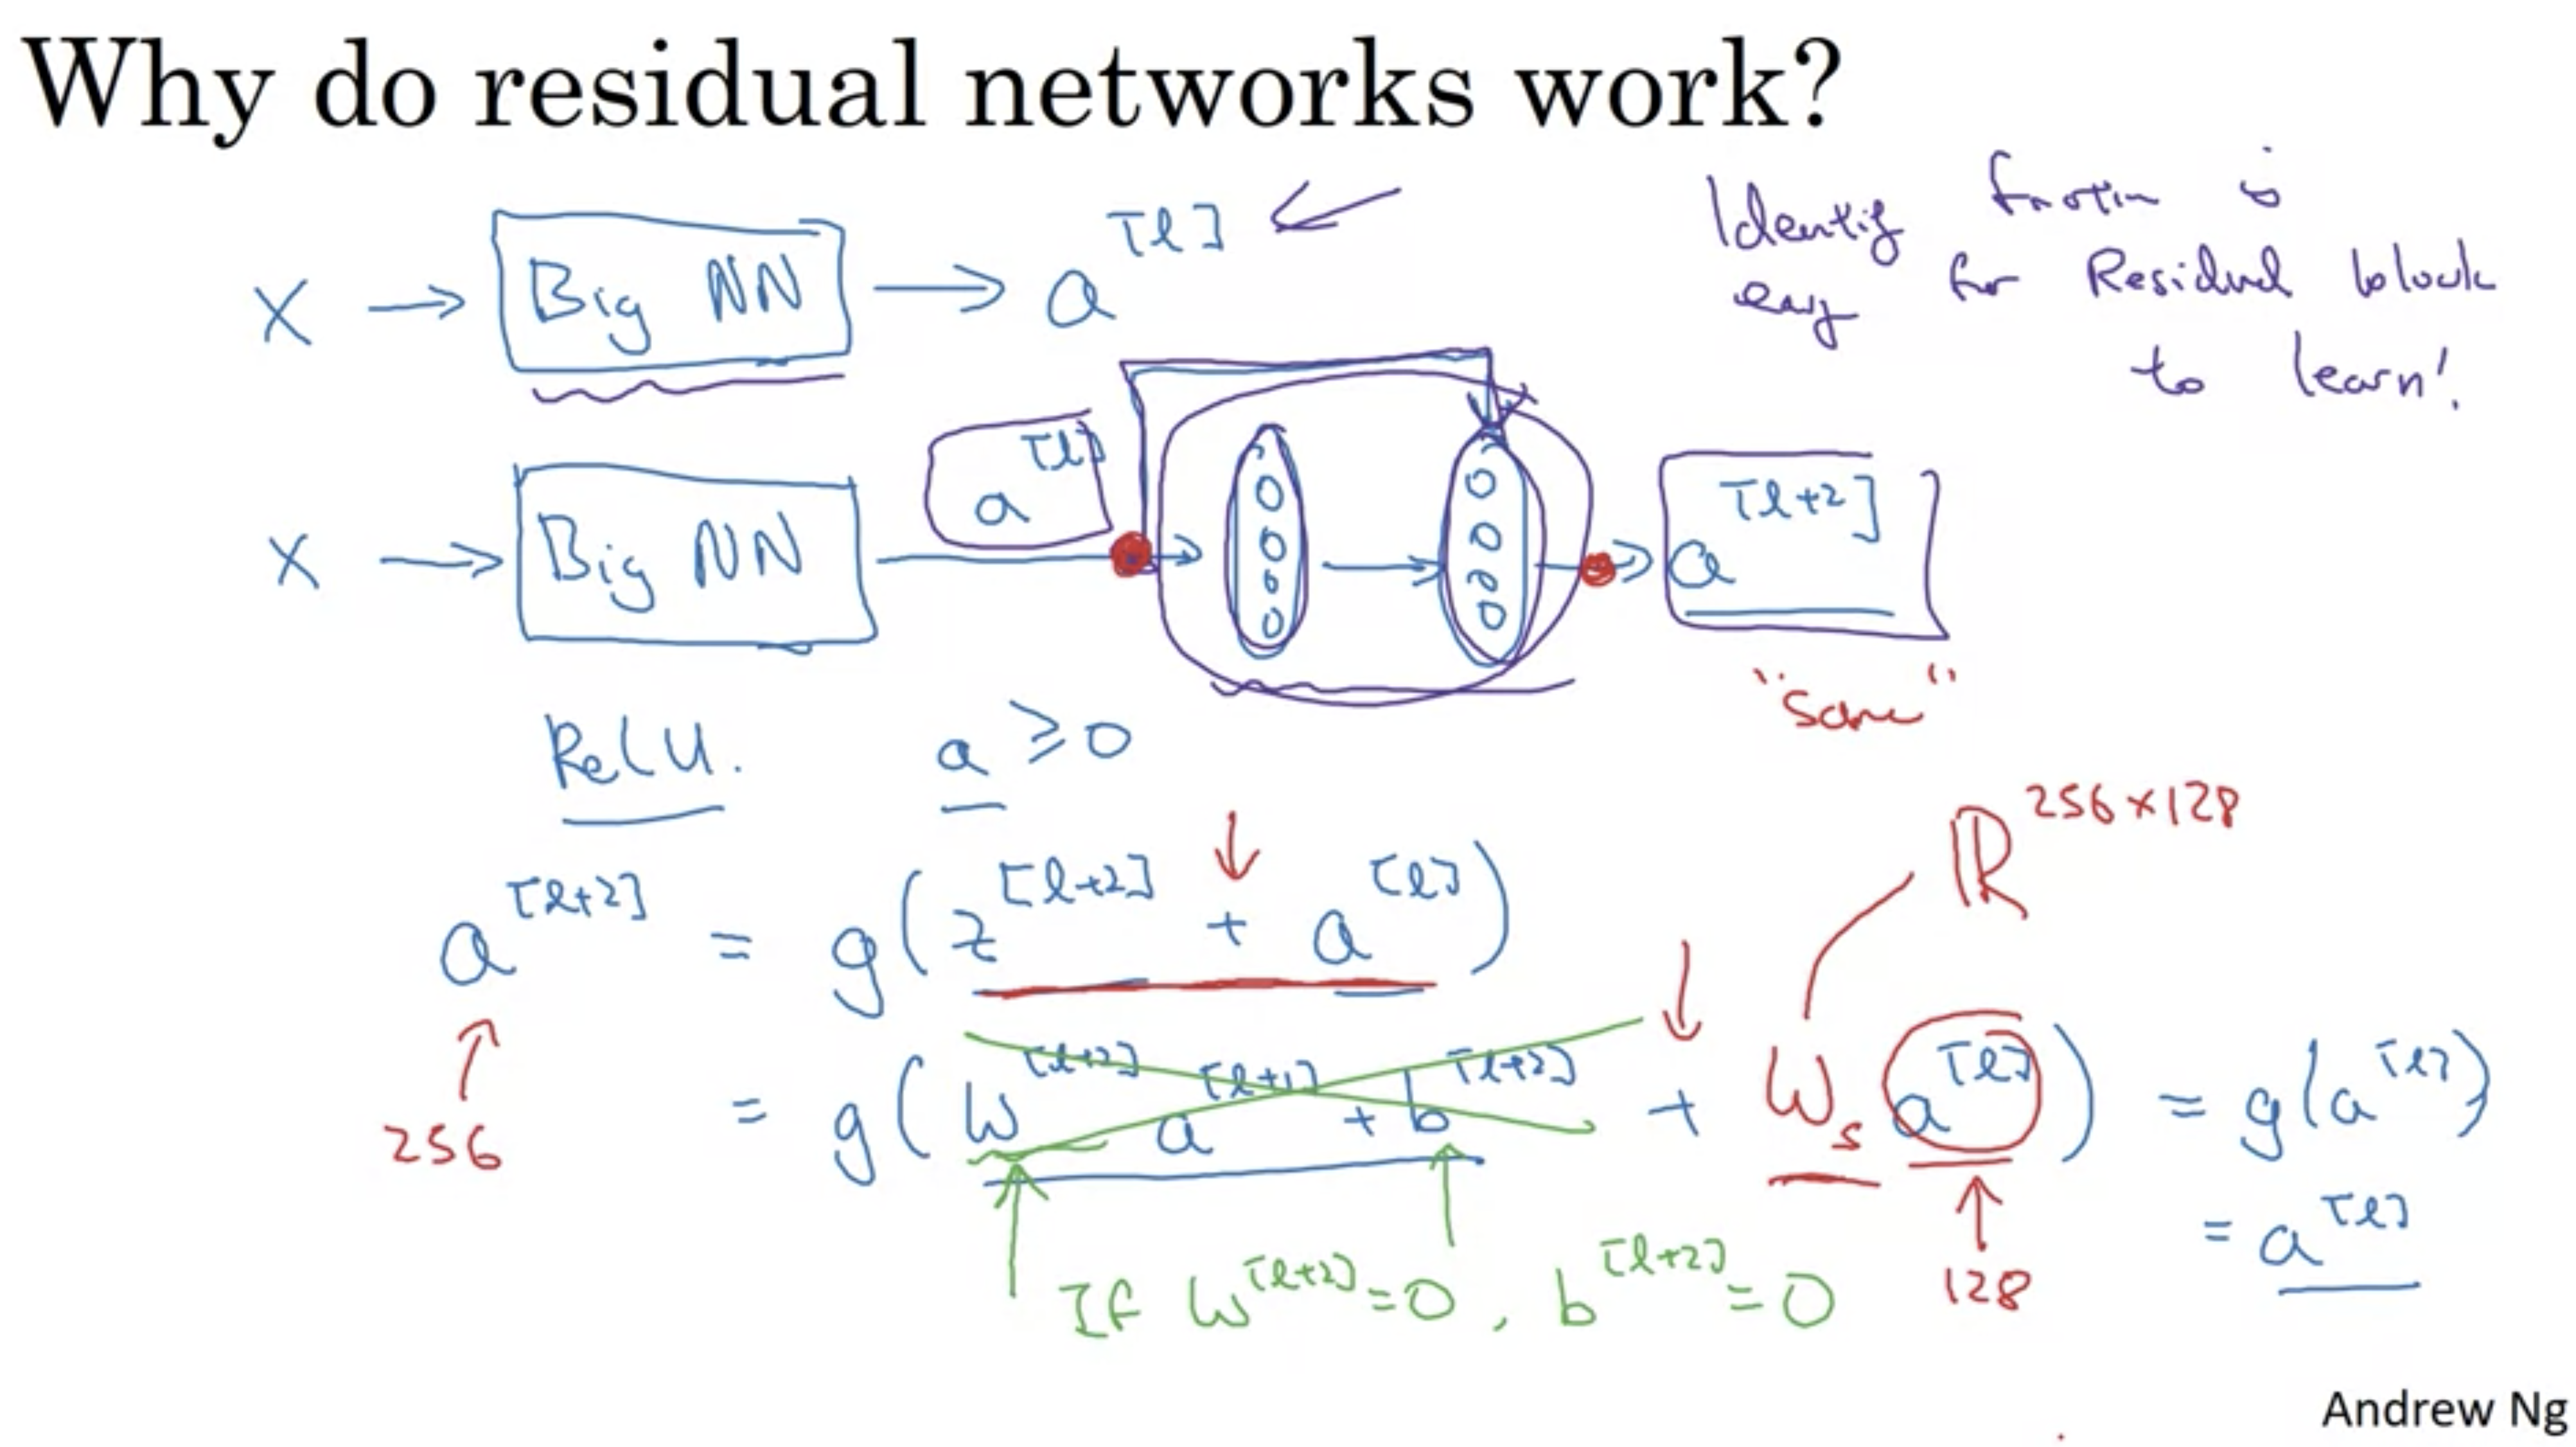 Why do residual networks work?
Identity function is
easy for Residual block
to learn!
X → Big NN → a^[l]
X → Big NN a^[l] → → → a^[l+2]
"Same"
ReLU. a ≥ 0
ℝ^256×128
a^[l+2] = g(z^[l+2] + a^[l])
256
= g(W^[l+2] a^[l+1] + b^[l+2] + W_s a^[l]) = g(a^[l])
= a^[l]
128
If W^[l+2] = 0, b^[l+2] = 0
Andrew Ng